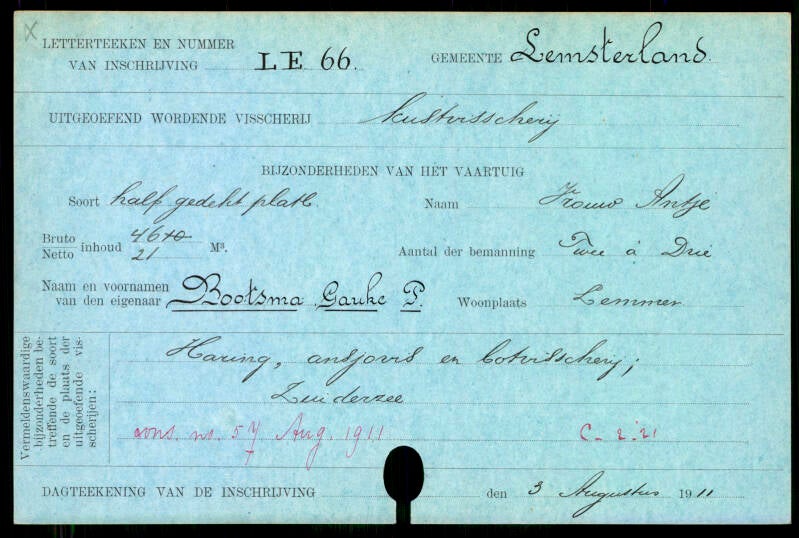 X
LETTERTEEKEN EN NUMMER
VAN INSCHRIJVING LE 66. GEMEENTE Lemsterland.
UITGEOEFEND WORDENDE VISSCHERIJ Kustvisscherij
BIJZONDERHEDEN VAN HET VAARTUIG
Soort half gedekt platb. Naam Vrouw Antje
Bruto
Netto inhoud 21 M³. Aantal der bemanning Twee à Drie
Naam en voornamen
van den eigenaar Bootsma Gauke P. Woonplaats Lemmer
Vermeldenswaardige
bijzonderheden be-
treffende de soort
en de plaats der
uitgeoefende vis-
scherijen:
Haring, ansjovis en botvisscherij;
Zuiderzee
cons. no. 57 Aug. 1911 C-2-21
7
DAGTEEKENING VAN DE INSCHRIJVING den 3 Augustus 1911